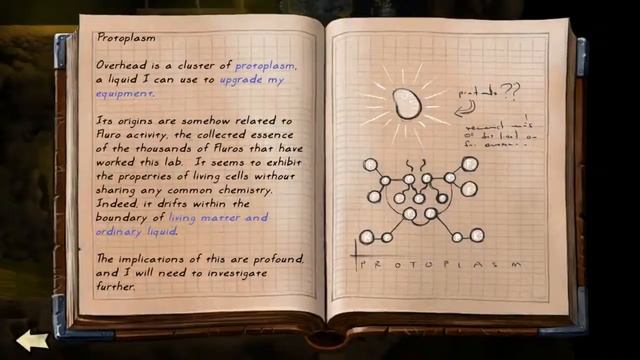 Protoplasm
Overhead is a cluster of protoplasm,
a liquid I can use to upgrade my
equipment.
Its origins are somehow related to
Fluro activity, the collected essence
of the thousands of Fluros that have
worked this lab. It seems to exhibit
the properties of living cells without
sharing any common chemistry.
Indeed, it drifts within the
boundary of living matter and
ordinary liquid.
The implications of this are profound,
and I will need to investigate
further.
??
PROTOPLASM